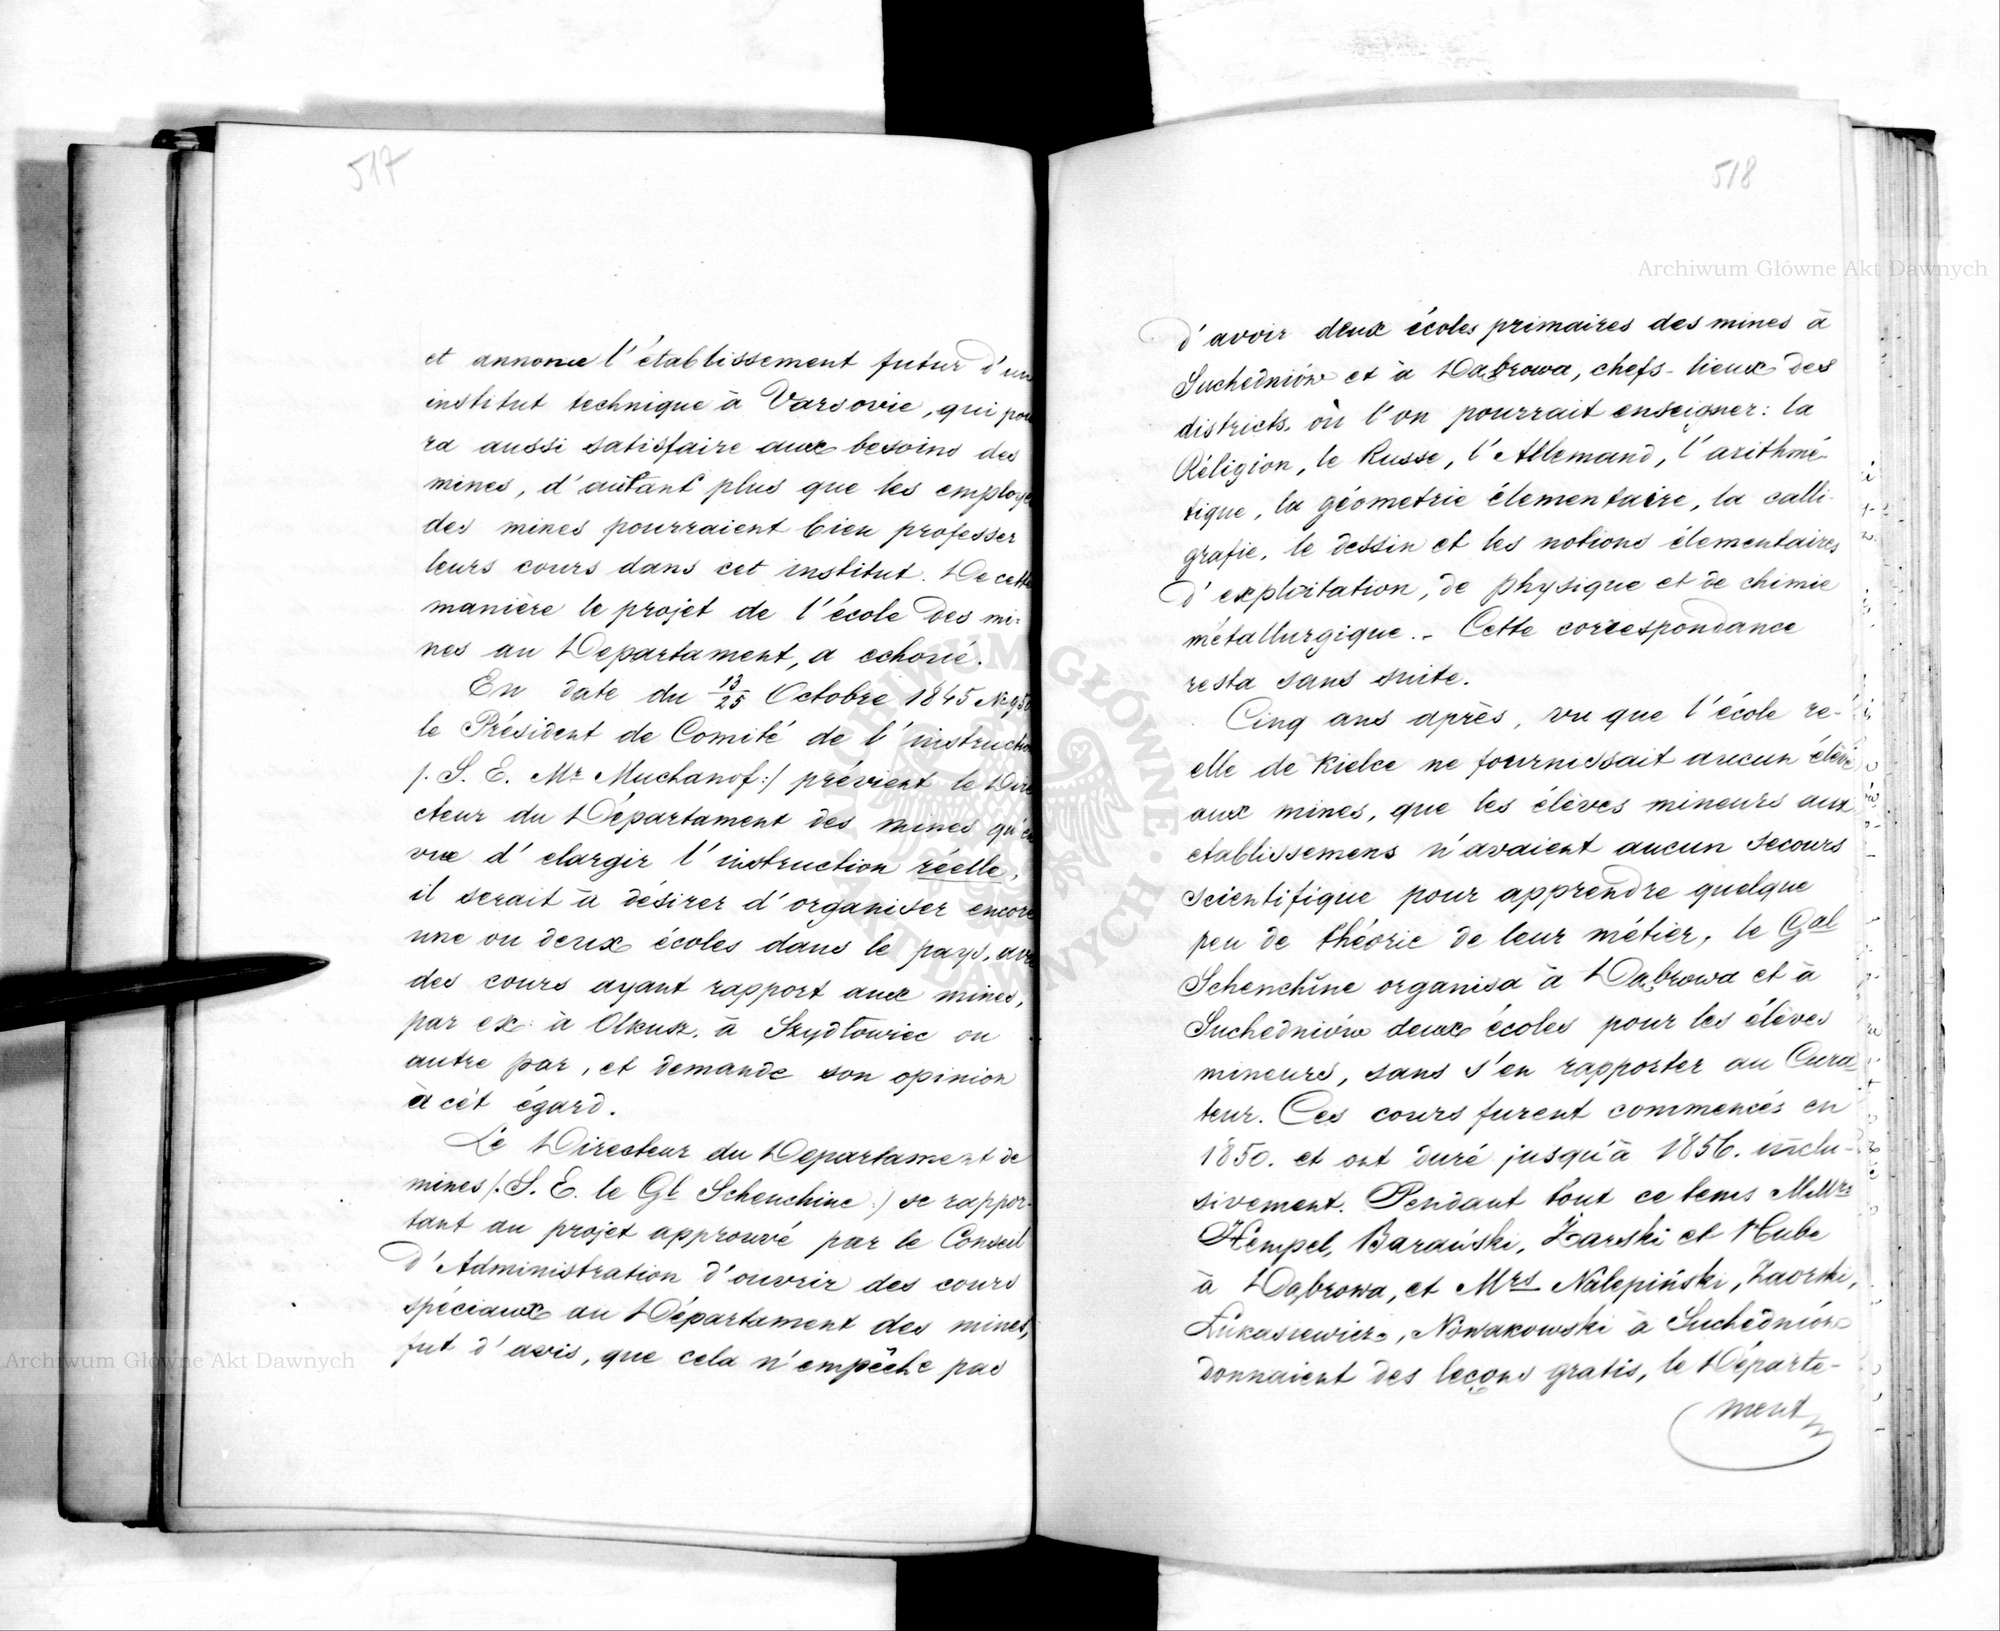 517
et annonce l'établissement futur d'un
institut technique à Varsovie, qui pou
ra aussi satisfaire aux besoins des
mines, d'autant plus que les employé
des mines pourraient bien professer
leurs cours dans cet institut. De cette
manière le projet de l'école des mi-
nes au Departament, a echoué.
En date du 13/25 Octobre 1845 №
le Président de Comité de l'instructio
/. S. E. Mr Muchanof :/ prévient le Dire
cteur du Département des mines qu'en
vue d'elargir l'instruction réelle,
il serait à désirer d'organiser encore
une ou deux écoles dans le pays, avec
des cours ayant rapport aux mines,
par ex: à Olkusz, à Szydłowiec ou
autre par, et demande son opinion
à cèt égard.
Le Directeur du Departament de
mines /. S. E. le Gl Schenchine :/ se rappor-
tant au projet approuvé par le Conseil
d'Administration d'ouvrir des cours
spéciaux au Département des mines,
fut d'avis, que cela n'empêche pas
518
d'avoir deux écoles primaires des mines à
Suchedniów et à Dąbrowa, chefs-lieux des
districts, où l'on pourrait enseigner: la
Réligion, le Russe, l'Allemand, l'arithmé-
tique, la géometrie élementaire, la calli-
grafie, le dessin et les notions élementaires
d'exploitation, de physique et de chimie
métallurgique. - Cette correspondance
resta sans suite.
Cinq ans après, vu que l'école ré-
elle de Kielce ne fournissait aucun élève
aux mines, que les élèves mineurs aux
etablissemens n'avaient aucun secours
scientifique pour apprendre quelque
peu de théorie de leur métier, le Gal
Schenchine organisa à Dąbrowa et à
Suchedniów deux écoles pour les élèves
mineurs, sans s'en rapporter au Cura
teur. Ces cours furent commencés en
1850. et ont duré jusqu'à 1856. inclu-
sivement. Pendant tout ce tems MMrs
Hempel, Barański, Żarski et Hube
à Dąbrowa, et Mrs Nalepiński, Zaorski,
Łukasiewicz, Nowakowski à Suchedniów
donnaient des leçons gratis, le Départe-
ment
Archiwum Główne Akt Dawnych
Archiwum Główne Akt Dawnych
ARCHIWUM GŁÓWNE · AKT DAWNYCH ·